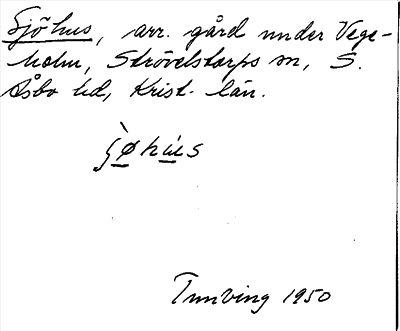 Sjöhus, arr. gård under Vege-
holm, Strövelstorps sn, S.
Åsbo hd, Krist. län.
ʃø̀hùs
Tunving 1950